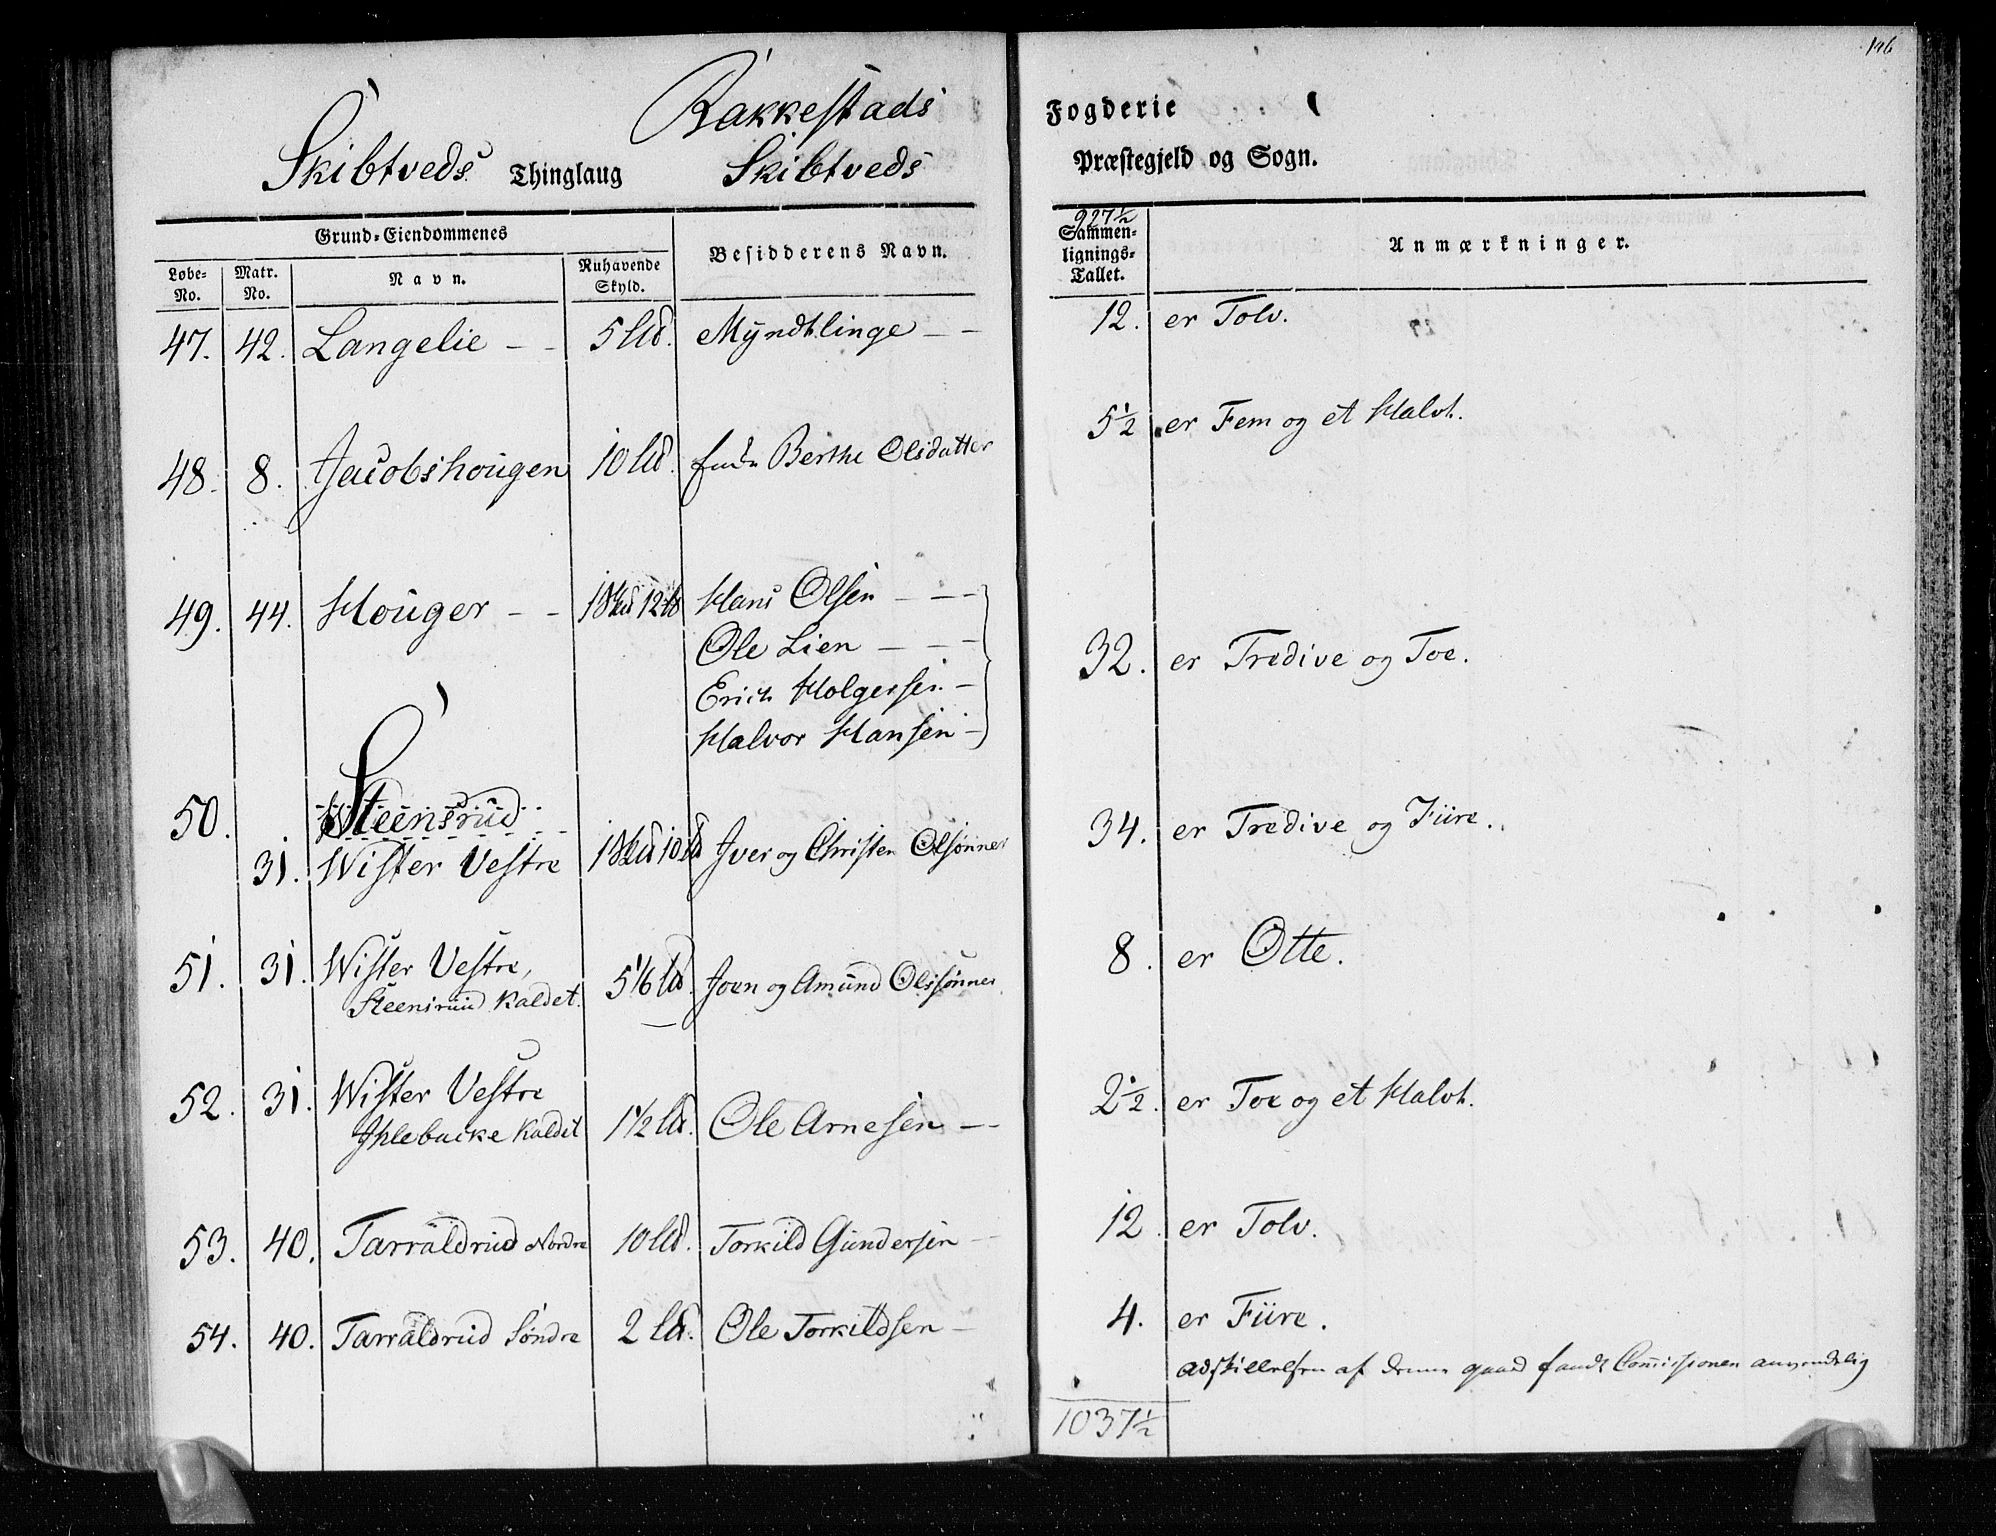 196
Rakkestads Fogderie
Skibtveds Thinglaug Skibtveds Præstegjeld og Sogn.
Grund-Eiendommenes
Løbe-No. Matr. No. Navn. Nuhavende Skyld. Besidderens Navn. 927½ Sammenlignings-Tallet. Anmærkninger.
47. 42. Langelie - - 5 Lld. Myndtlinge - - 12. er Tolv.
48. 8. Jacobshougen 10 Lld. Berthe Olsdatter 5½ er Fem og et Halvt.
49. 44. Houger - - Hans Olsen - - -
Ole Lien - - - 32. er Tredive og Toe.
Erich Holgersen -
Halvor Hansen -
50. Steensrud 34. er Tredive og Fiire.
31. Wister Vestre Iver og Christen Olsønner
51. 31. Wister Vestre, 5 1/6 Ld. Joen og Amund Olssønner 8. er Otte.
Steensrud kaldet.
52. 31. Wister Vestre 2½. er Toe og et Halvt.
Ihlebacke kaldet 1½ Ld. Ole Arnesen - -
53. 40. Tarraldrud Nordre 10 Lld. Torkild Gundersen - 12. er Tolv.
54. 40. Tarraldrud Søndre 2 Ld. Ole Torkildsen - 4. er Fiire.
adskillelsen af denne gaard fandt Commissionen anvendelig
1037½